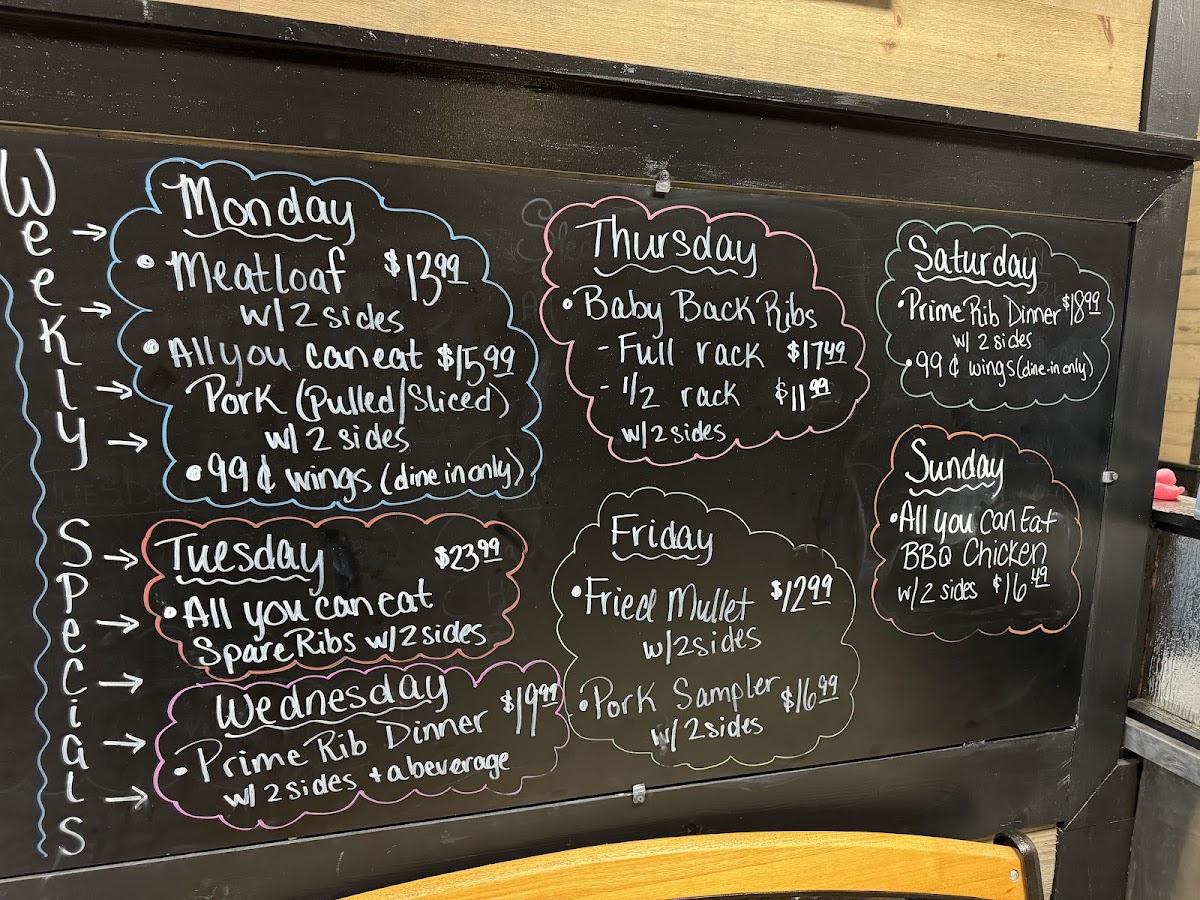 Weekly Specials
Monday
• Meatloaf $13.99
w/ 2 sides
• All you can eat $15.99
Pork (Pulled/Sliced)
w/ 2 sides
• 99¢ wings (dine in only)
Tuesday
$23.99
• All you can eat
Spare Ribs w/ 2 sides
Wednesday
• Prime Rib Dinner $19.99
w/ 2 sides + a beverage
Thursday
• Baby Back Ribs
- Full rack $17.49
- 1/2 rack $11.99
w/ 2 sides
Friday
• Fried Mullet $12.99
w/ 2 sides
• Pork Sampler $16.99
w/ 2 sides
Saturday
• Prime Rib Dinner $18.99
w/ 2 sides
• 99¢ wings (dine-in only)
Sunday
• All you can Eat
BBQ Chicken
w/ 2 sides $16.49